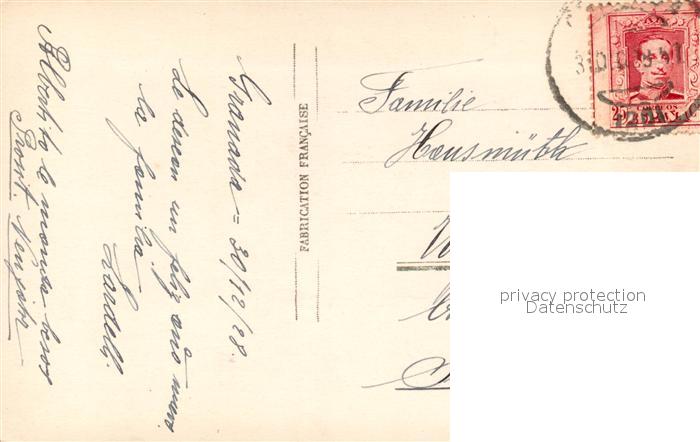 Granada = 30/12/28.
Le desean un feliz año nuevo
la familia
Lardelli
Albertito le manda besos
Prosit Neujahr
FABRICATION FRANÇAISE
Familie
Hausmüth
CORREOS
25
privacy protection
Datenschutz